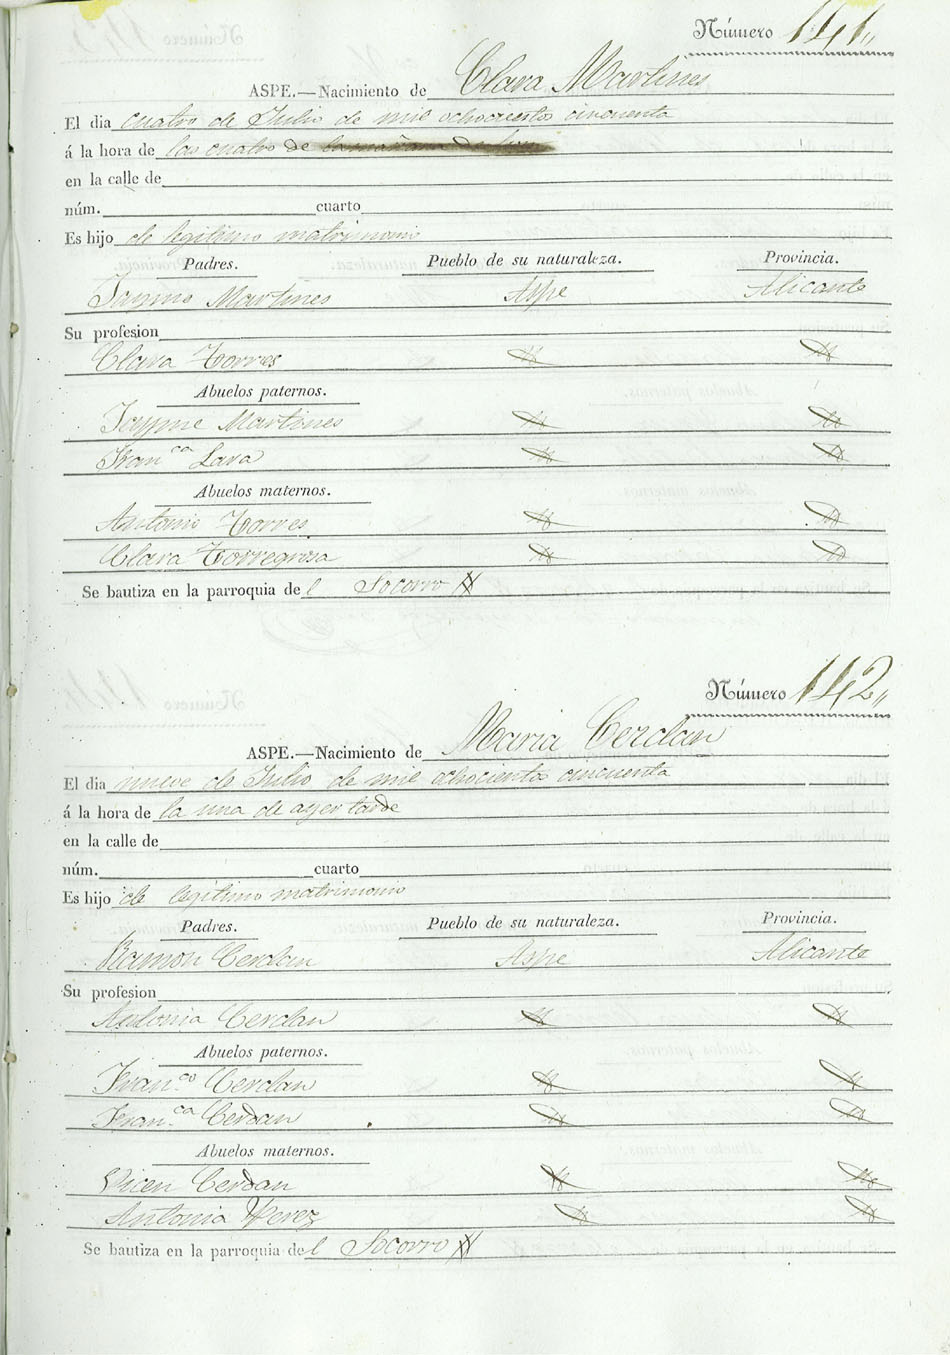 Número 141
ASPE.—Nacimiento de Clara Martines
El dia cuatro de Julio de mil ochocientos cincuenta
á la hora de las cuatro de
en la calle de
núm. cuarto
Es hijo de legitimo matrimonio
Padres. Pueblo de su naturaleza. Provincia.
Jayme Martines Aspe Alicante
Su profesion
Clara Torres
Abuelos paternos.
Jayme Martines
Fran.ca Lara
Abuelos maternos.
Antonio Torres
Clara Torregrosa
Se bautiza en la parroquia del Socorro
Número 142
ASPE.—Nacimiento de Maria Cerdan
El dia nueve de Julio de mil ochocients cincuenta
á la hora de la una de ayer tarde
en la calle de
núm. cuarto
Es hijo de legitimo matrimonio
Padres. Pueblo de su naturaleza. Provincia.
Ramon Cerdan Aspe Alicante
Su profesion
Antonia Cerdan
Abuelos paternos.
Fran.co Cerdan
Fran.ca Cerdan
Abuelos maternos.
Vicen Cerdan
Antonia Perez
Se bautiza en la parroquia del Socorro